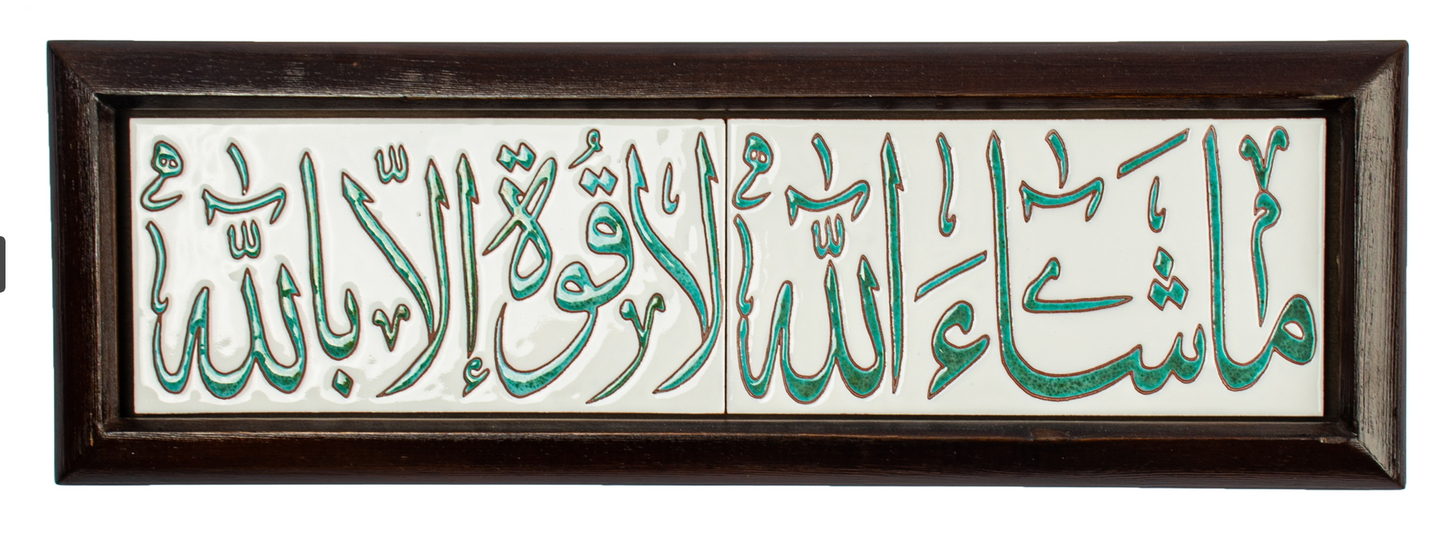 ما شاءَ الله لا قُوة إلا بالله